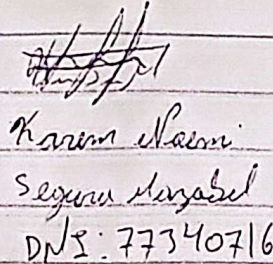 Karem Naemi
Segura Marzabel
DNI: 77340716